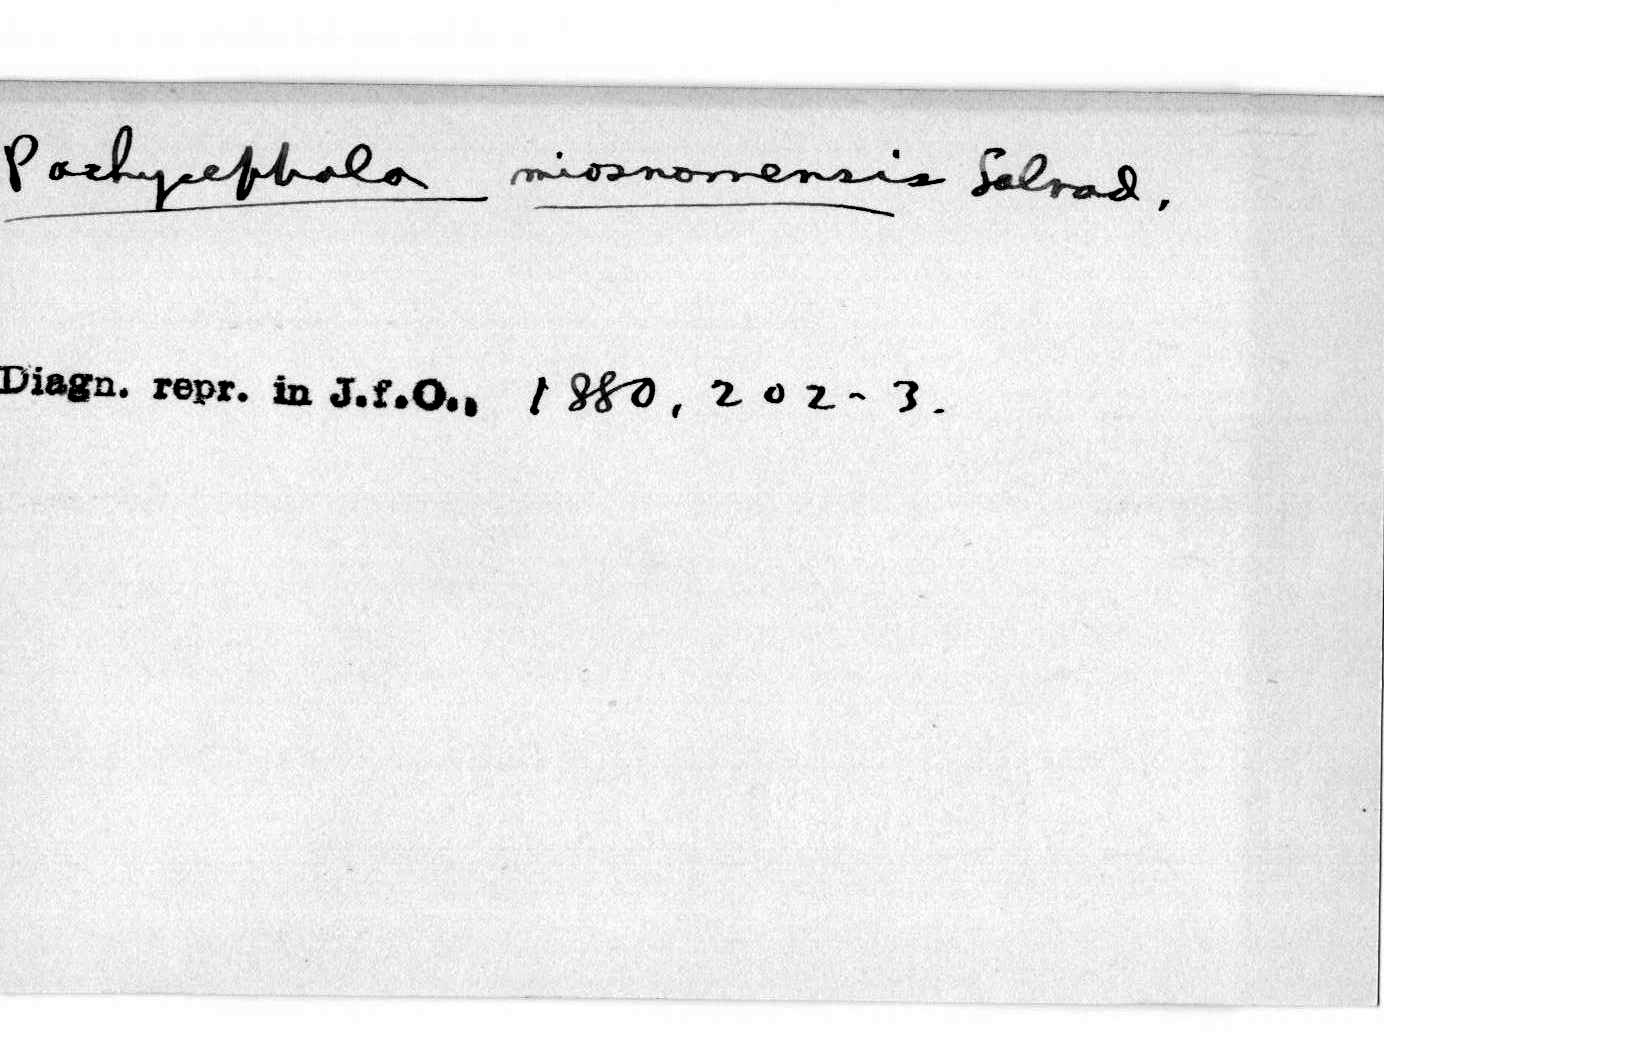 Pachycephala miosnomensis Salvad.
Diagn. repr. in J.f.O., 1880, 202-3.